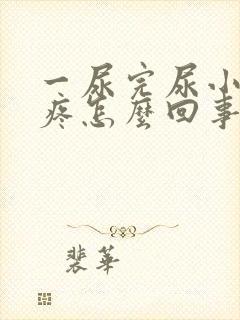 一尿完尿小
疼怎麼回事
裴華